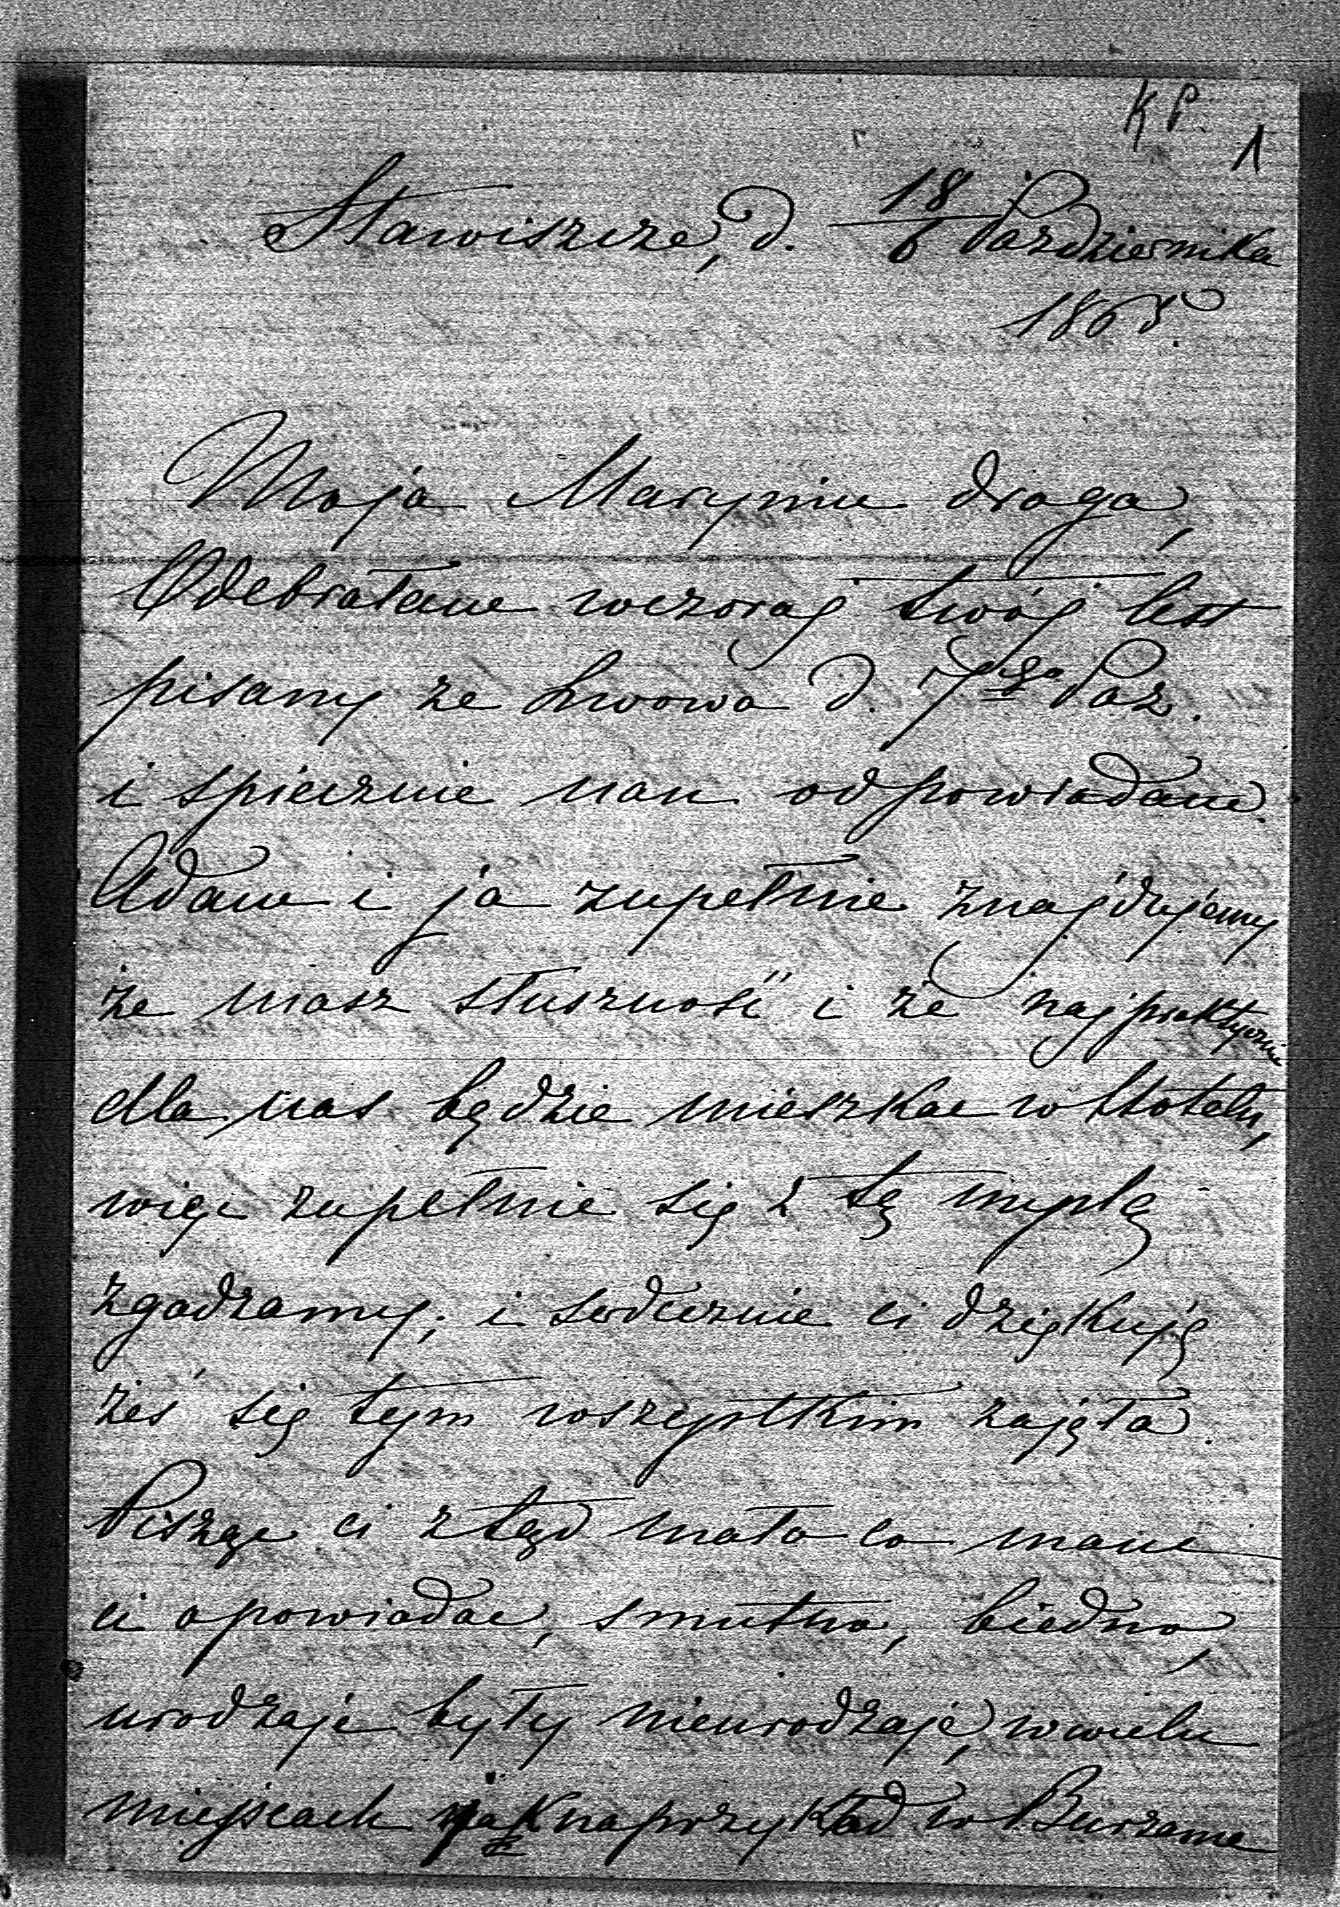 K P.
1
Stawiszcze, d. 18/6 Października
1865.
Moja Maryniu droga,
Odebrałam wczoraj twój list
pisany ze Lwowa d. 7go Paz.
i spiesznie nan odpowiadam.
Adam i ja zupełnie znajdujemy
że masz słuszność i że najpraktyczniej
dla nas będzie mieszkac w Hotelu,
więc zupełnie się z tą myslą
zgadzamy; i serdecznie ci dziękuję
żeś się tym wszystkim zajęła.
Pisząc ci ztąd mało co mam
ci opowiadac, smutno, biedno,
urodzaje były nieurodzaje, w wielu
miejscach jak naprzykład w Burzame